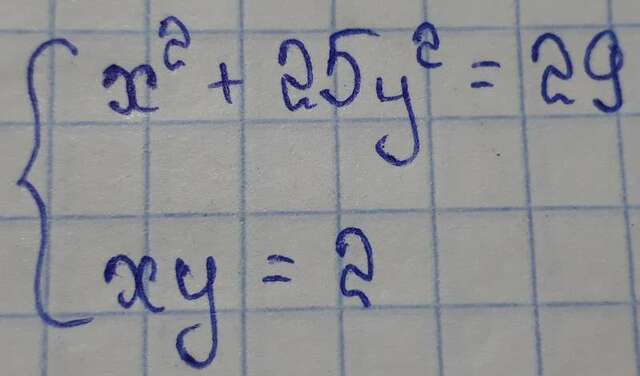 x² + 25y² = 29
xy = 2